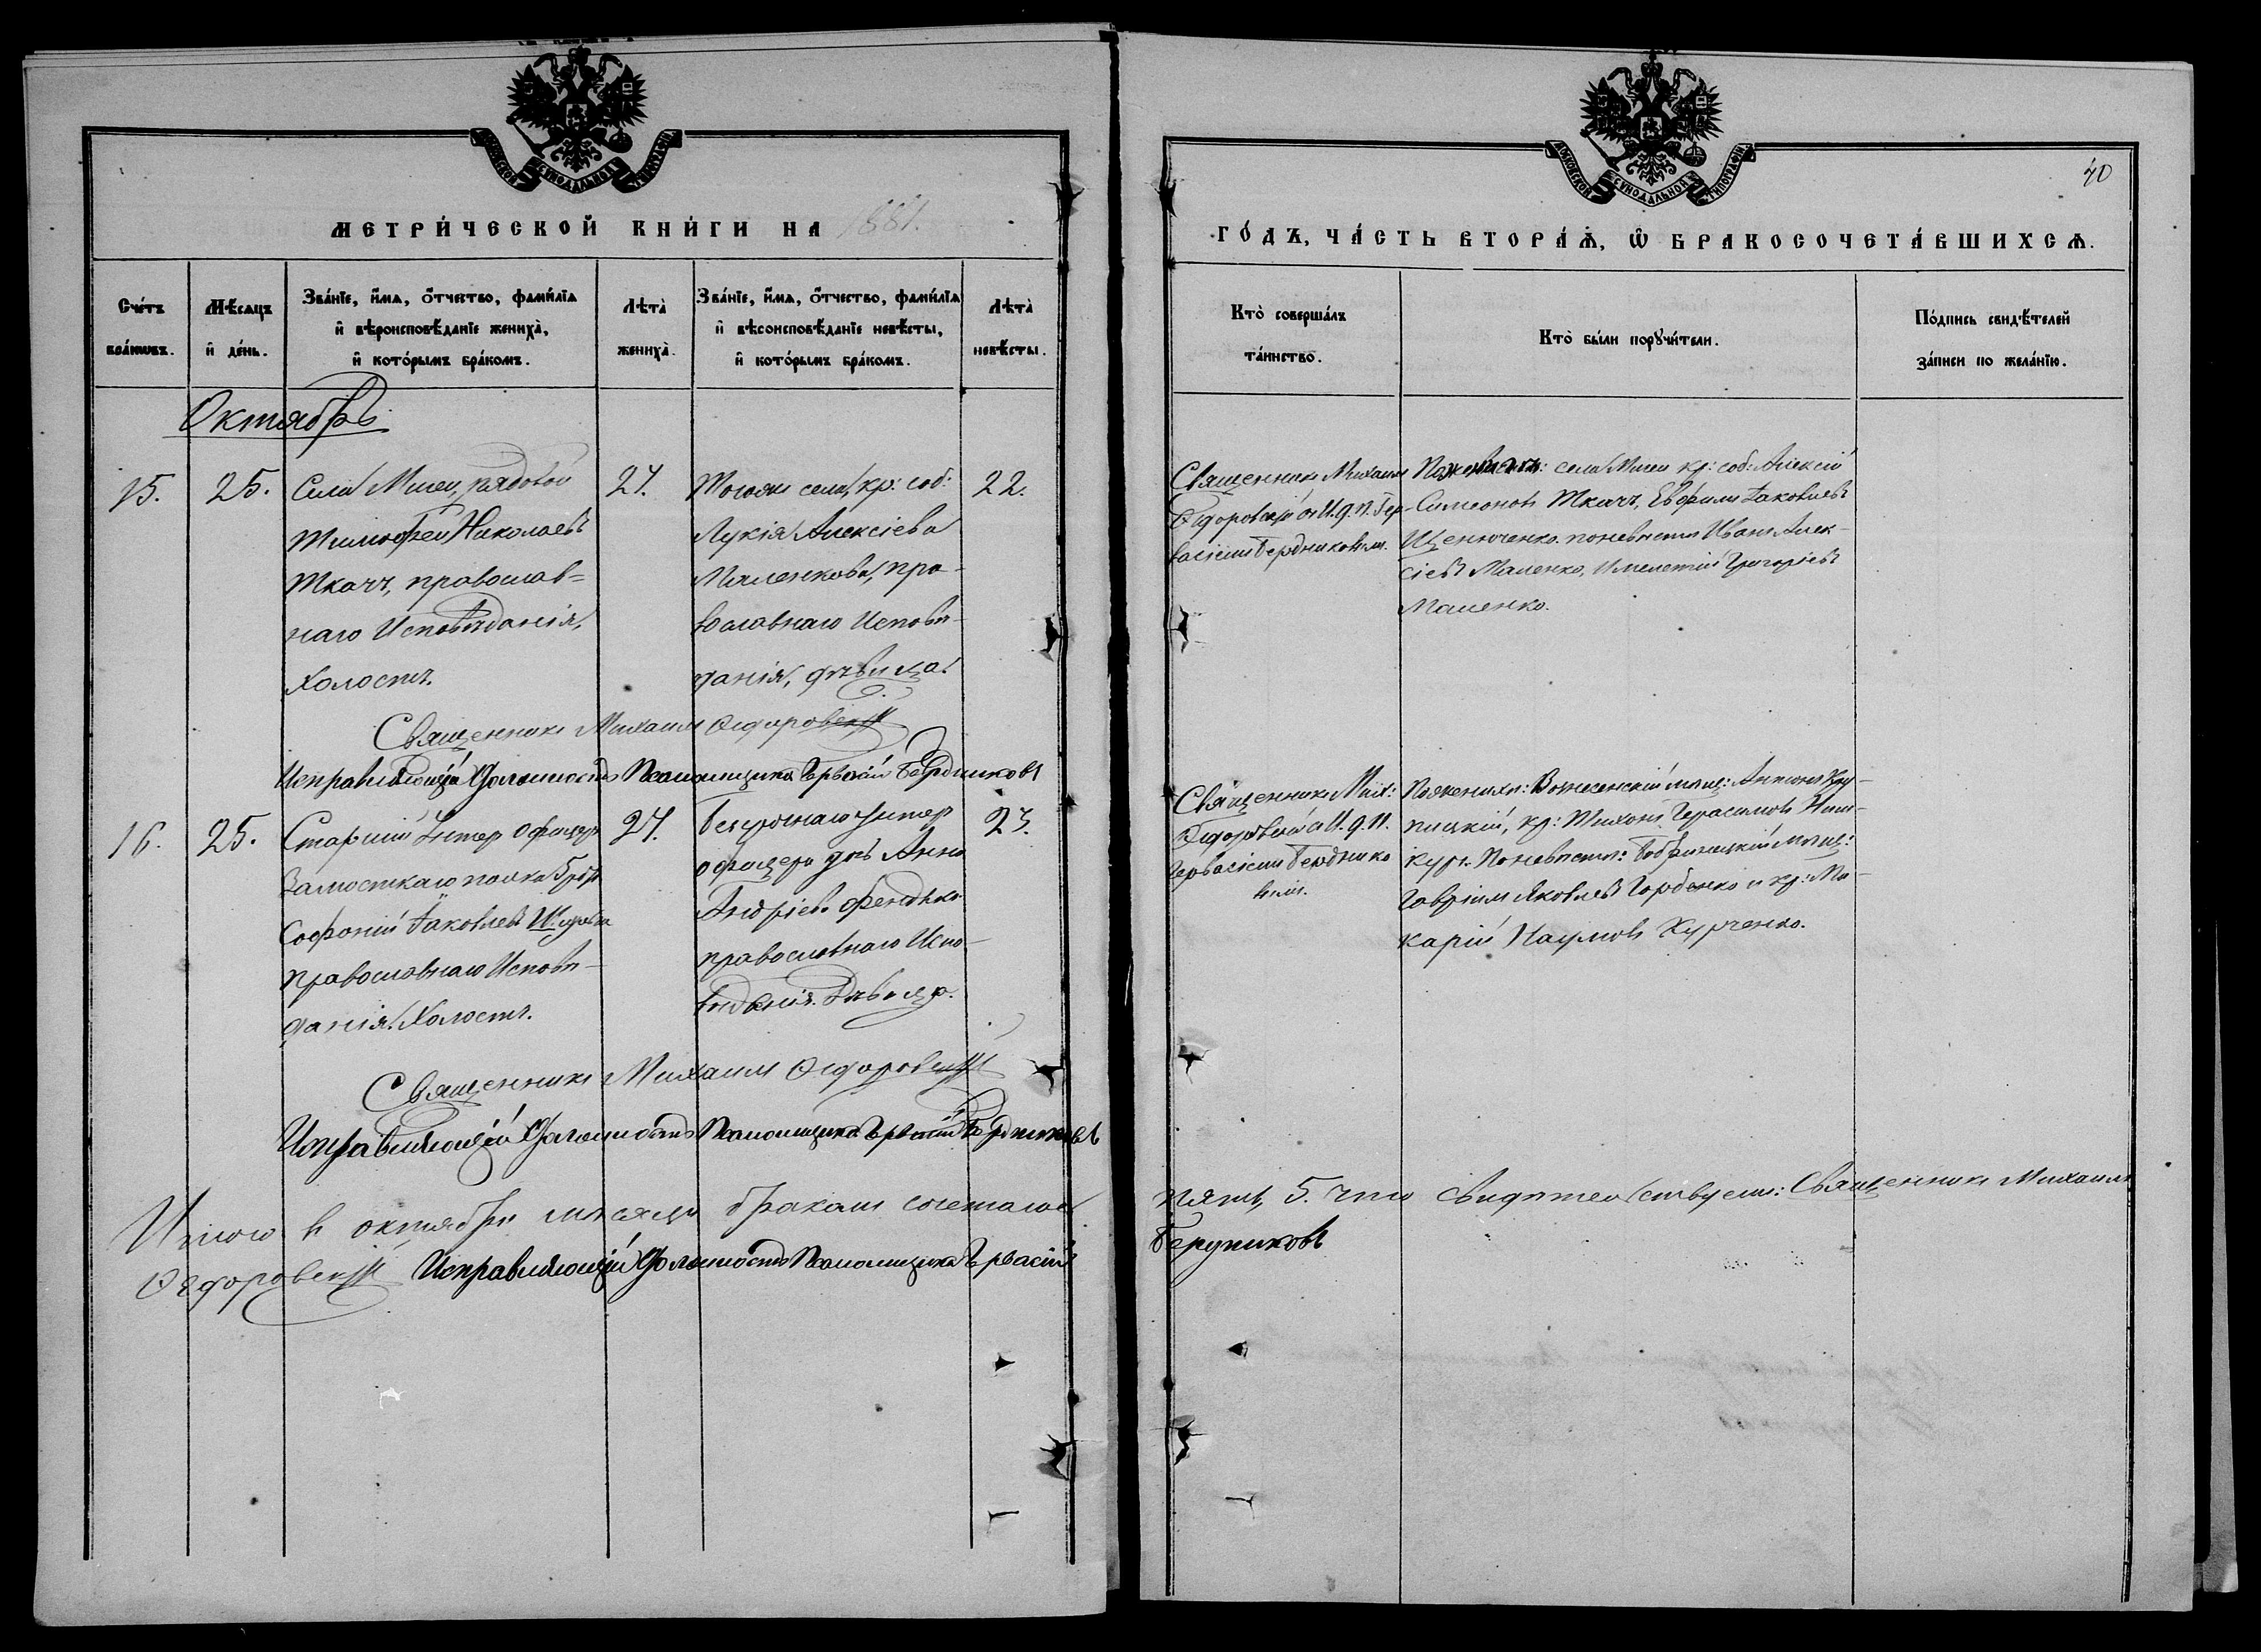 МОСКОВСКОЙ СѴНОДАЛЬНОЙ ТИПОГРАФІИ
МЕТРИ́ЧЕСКОЙ КНИ́ГИ НА 1881.
Сче́тъ бра́ковъ.
Мѣ́сяцъ и҆ де́нь.
Зва́нїе, и҆́мѧ, ѻ҆́тчество, фами́лїѧ
и҆ вѣроисповѣ́данїе жениха̀,
и҆ кото́рымъ бра́комъ.
Лѣта̀ жениха̀.
Зва́нїе, и҆́мѧ, ѻ҆́тчество, фами́лїѧ
и҆ вѣсоисповѣ́данїе невѣ́сты,
и҆ кото́рымъ бра́комъ.
Лѣта̀ невѣ́сты.
Октябрь
15.
25.
Села Мигеи, рядовой
Тимофей Николаевъ
Ткачъ, православ=
наго Исповѣданія,
Холостъ.
27.
Тогоже села, кр: соб:
Лукія Алексіева
Маленкова, пра-
вославнаго Исповѣ-
данія, дѣвица.
22.
Священникъ Михаилъ Ѳедоровскій
Исправляющій Должность Псаломщика Гервасій Бердниковъ
16.
25.
Старшій Унтер офицеръ
Замостскаго полка
Софоній Іаковлевъ
православнаго Исповѣ-
данія. Холостъ.
27.
безсрочнаго Унтер
офицера дочь Анна
Андріева
православнаго Испо-
вѣданія. Дѣвица.
23.
Священникъ Михаилъ Ѳедоровскій
Исправляющій Должность Псаломщика Гервасій Бердниковъ
Итого въ октябрѣ мѣсяцѣ бракомъ сочеталось
Ѳедоровскій Исправляющій Должность Псаломщика Гервасій
МОСКОВСКОЙ СѴНОДАЛЬНОЙ ТИПОГРАФІИ
40
ГО́ДЪ, ЧА́СТЬ ВТОРА́Ѧ, Ѽ БРАКОСОЧЕТА́ВШИХСѦ.
Кто̀ соверша́лъ
та́инство.
Кто̀ бы́ли порꙋчи́тели.
По́дпись свидѣ́телей
за́писи по жела́нїю.
Священникъ Михаилъ
Ѳедоровскій съ И. д. П. Гер-
васіемъ Бердниковымъ.
По женихѣ: села Мигеи кр: соб: Алексій
Симеоновъ Ткачъ, Евфимъ Іаковлевъ
Щенюченко. по невѣстѣ Иванъ Алек-
сіевъ Маленко, и мелетій Григорьевъ
Маленко.
Священникъ Мих:
Ѳедоровскій съ И. д. П.
Гервасіемъ Бердников
вымъ.
По женихѣ: Вознесенскій мѣщ: Антонъ Кру-
пицкій, кр: Тихонъ Герасимовъ
По невѣстѣ: Бобринецкій мѣщ:
Гавріилъ Яковлевъ Горбенко и кр: Ма-
карій Наумовъ Курченко.
пять, 5. что свидѣтельствуемъ: Священникъ Михаилъ
Бердниковъ